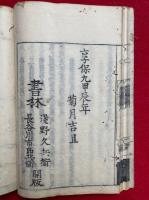 享保九甲辰年
菊月吉旦
書林
淺野久兵衛
長谷川市良兵衛
開版